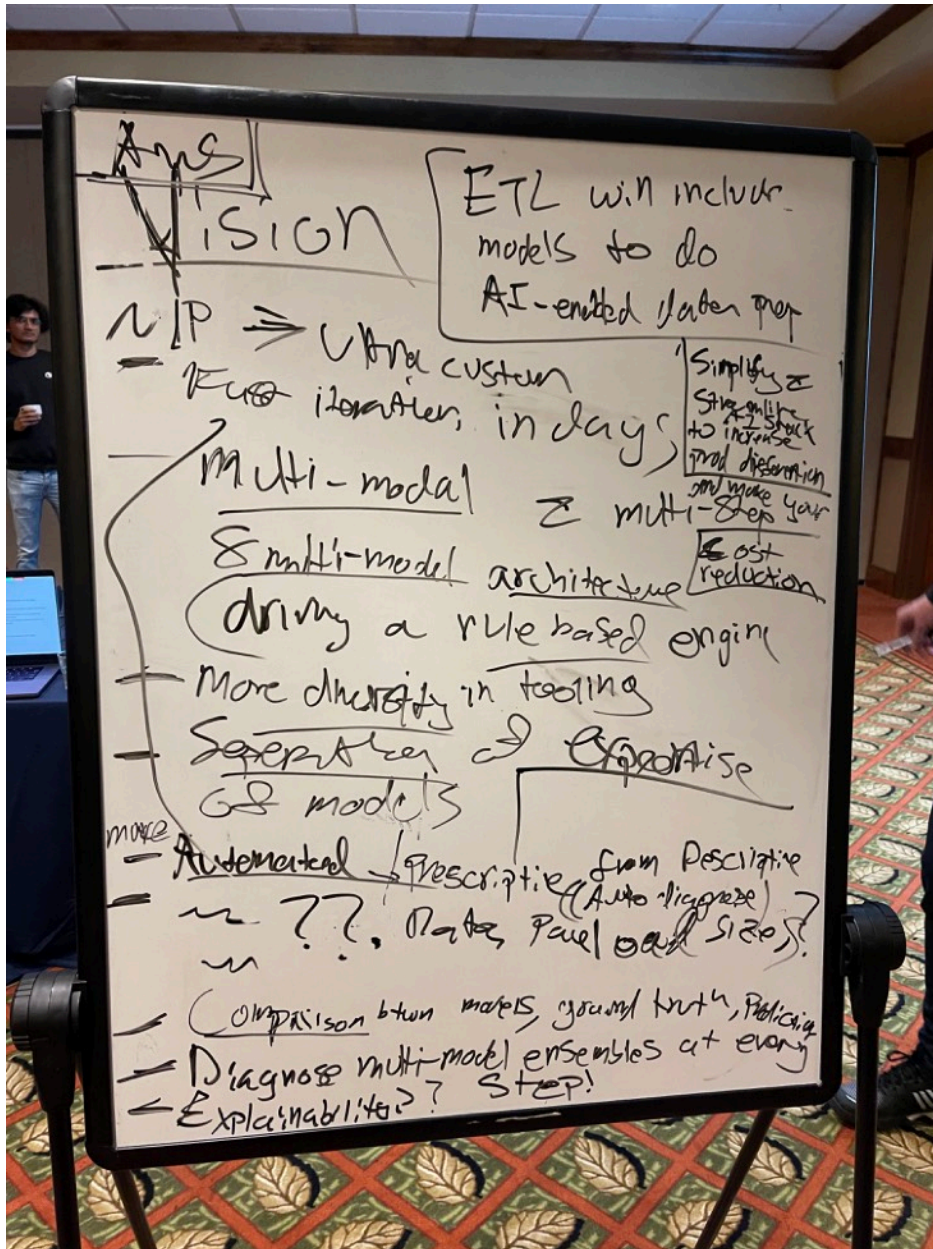 Vision
ETL will include
models to do
AI-enabled data prep
NLP => Ultra custom
Fast iteration, in days,
Simplify &
Streamline
Stack
to increase
prod
and make your
Cost
reduction
multi-modal
& multi-step
& multi-model architecture
driving a rule based engine
more diversity in tooling
Seperation of expertise
of models
more
Automated prescriptive from Descriptive
(Auto diagnose)
~ ??. Data, Payload Sizes?
~
Comparison btwn models, ground truth, Prediction
Diagnose multi-model ensembles at every
Step!
Explainability??